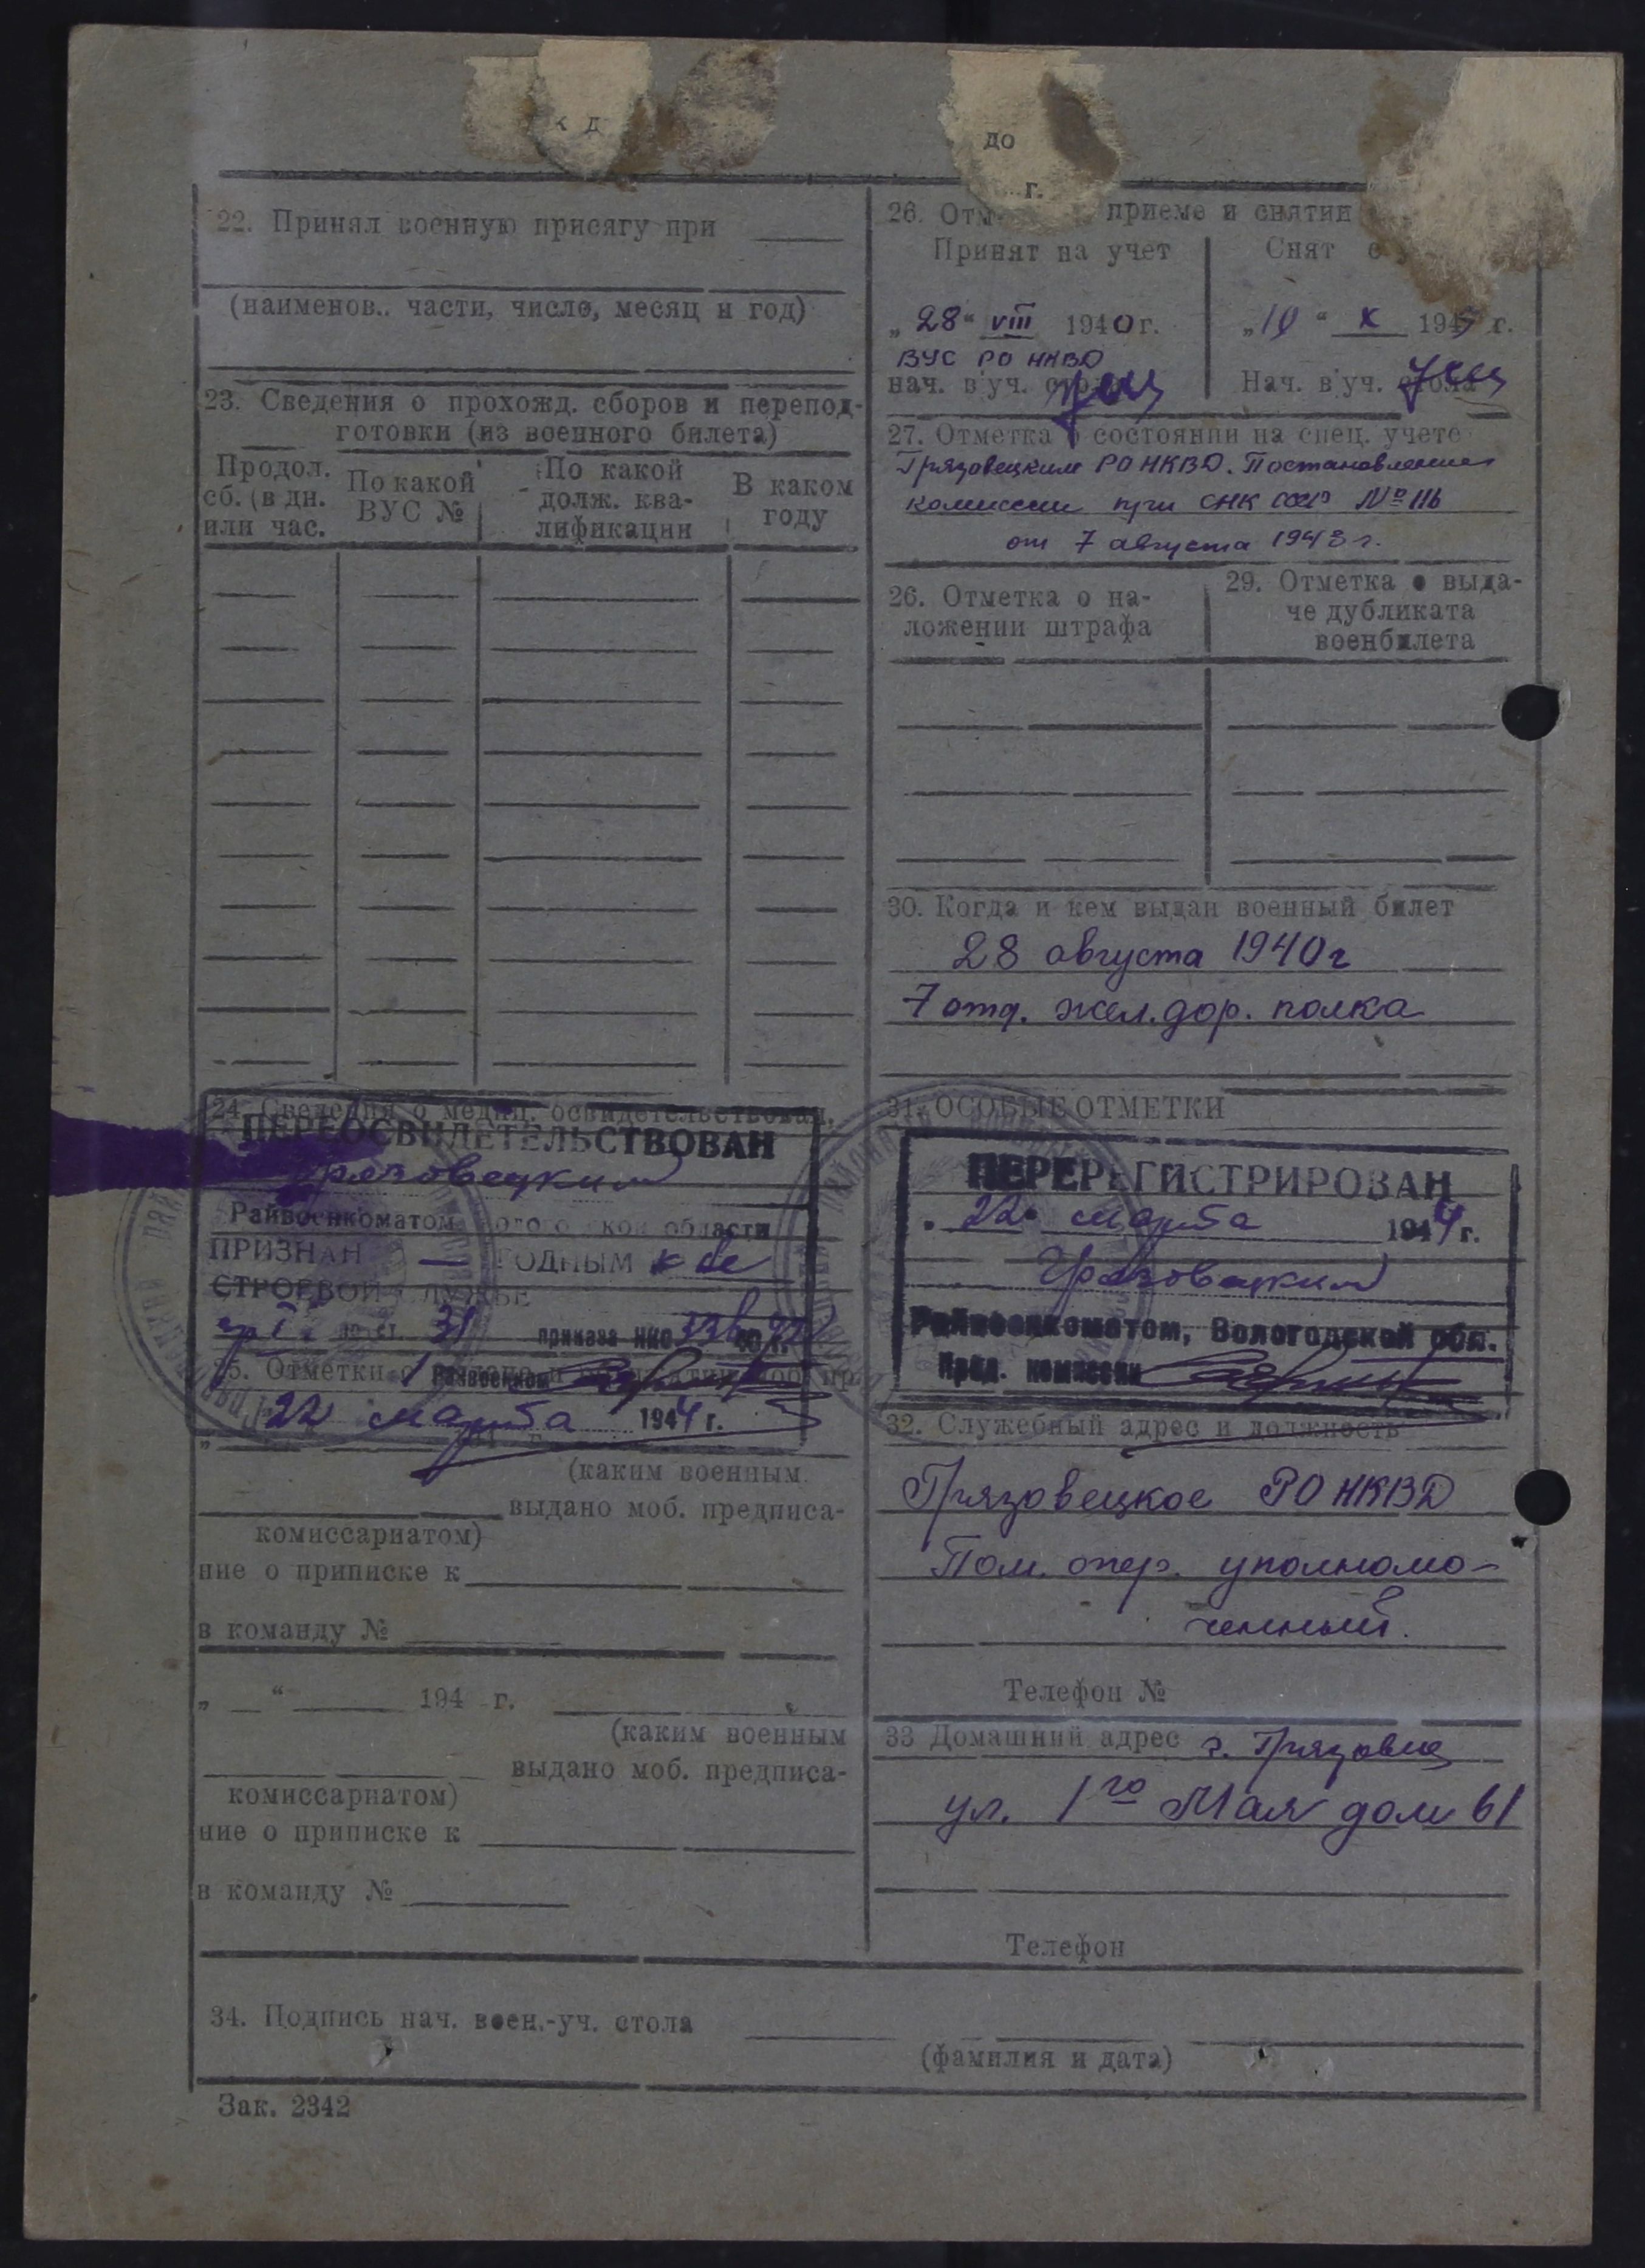 к д
до
г.
22. Принял военную присягу при
(наименов.. части, число, месяц и год)
23. Сведения о прохожд. сборов и перепод-
готовки (из военного билета)
Продол. сб. (в дн. или час.
По какой ВУС №
По какой долж. ква- лификации
В каком году
24. Сведения о медиц. освидетельствован.
ПЕРЕОСВИДЕТЕЛЬСТВОВАН
Грязовецким
Райвоенкоматом области
ПРИЗНАН — ГОДНЫМ к
СТРОЕВОЙ СЛУЖБЕ
гр I по ст. 31 приказа НКО 336
25. Отметки о
22 марта 1944 г.
(каким военным
выдано моб. предписа-
комиссариатом)
ние о приписке к
в команду №
„ “ 194 г.
(каким военным
выдано моб. предписа-
комиссариатом)
ние о приписке к
в команду №
26. Отм приеме и снятии
Принят на учет
Снят с у
„28“ VIII 1940 г.
„10“ X 194 г.
ВУС РО НКВД
нач. в'уч. сто
Нач. в'уч. стола
27. Отметка о состоянии на спец. учете
Грязовецким РО НКВД. Постановление
комиссии при СНК СССР № 116
от 7 августа 1943 г.
26. Отметка о на-
ложении штрафа
29. Отметка о выда-
че дубликата
военбилета
30. Когда и кем выдан военный билет
28 августа 1940 г
7 отд. жел. дор. полка
31. ОСОБЫЕ ОТМЕТКИ
ПЕРЕРЕГИСТРИРОВАН
22 марта 1944 г.
Грязовецким
Райвоенкоматом, Вологодской обл.
Пред. комиссии
32. Служебный адрес и должность
Грязовецкое РО НКВД
Пом. опер. уполномо-
ченный.
Телефон №
33 Домашний адрес г. Грязовец
ул. 1го Мая дом 61
Телефон
34. Подпись нач. воен.-уч. стола
(фамилия и дата)
Зак. 2342